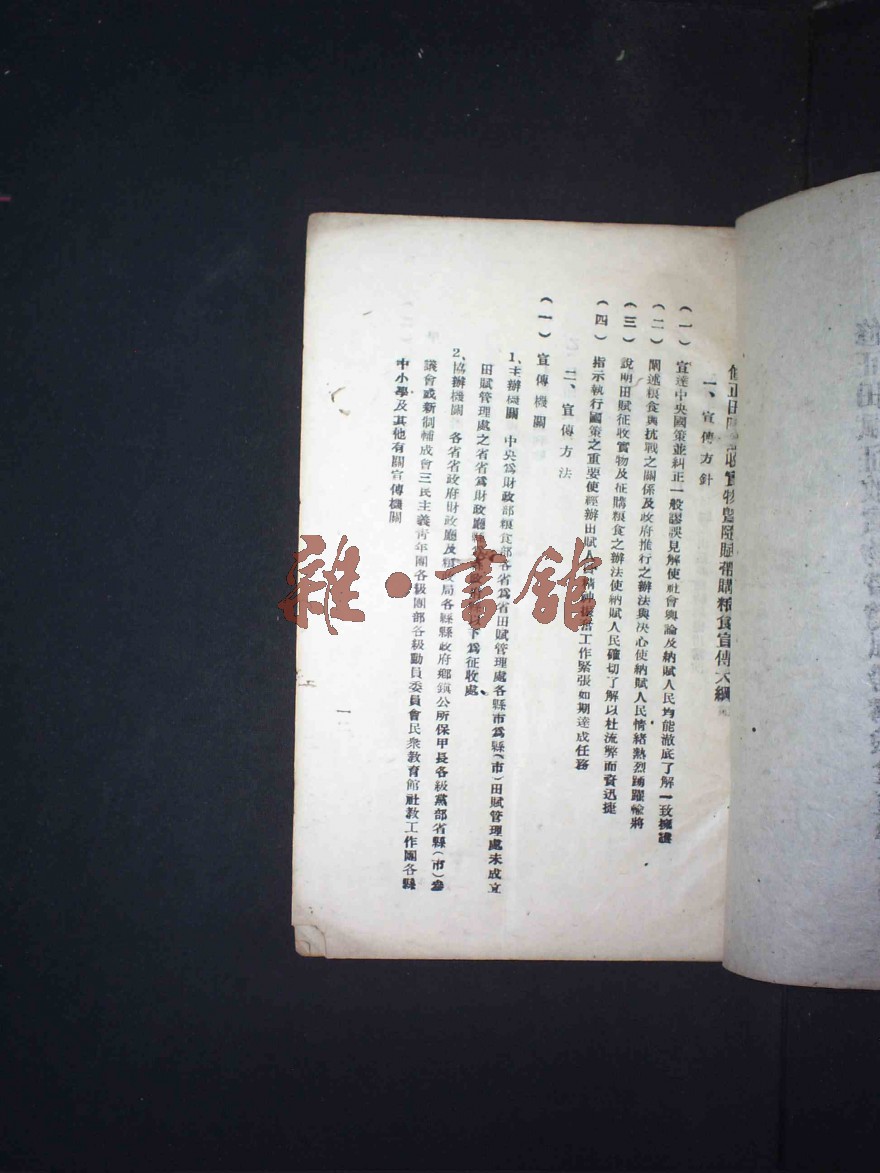 修正田賦征收實物暨隨賦帶購粮食宣傳大綱
一、宣傳方針
(一) 宣達中央國策並糾正一般謬誤見解使社會輿論及納賦人民均能澈底了解一致擁護
(二) 闡述粮食與抗戰之關係及政府推行之辦法與决心使納賦人民情緒熱烈踴躍輸將
(三) 說明田賦征收實物及征購粮食之辦法使納賦人民確切了解以杜流弊而資迅捷
(四) 指示執行國策之重要使經辦田賦人員精神振奮工作緊張如期達成任務
二、宣傳方法
(一) 宣傳機關
1、主辦機關 中央爲財政部粮食部各省爲省田賦管理處各縣市爲縣(市)田賦管理處未成立
田賦管理處之省省爲財政廳縣爲縣政府縣以下爲征收處
2、協辦機關 各省省政府財政廳及粮政局各縣縣政府鄉鎮公所保甲長各級黨部省縣(市)參
議會或新制輔成會三民主義青年團各級團部各級動員委員會民衆教育館社教工作團各縣
中小學及其他有關宣傳機關
一
雜·書館